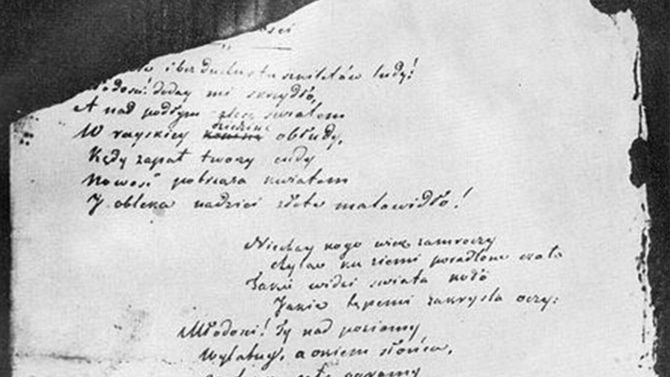 ści
i bez ducha to szkieletów ludy!
łodości! doday mi skrzydło,
A nad podłym zlecę światem
W rayskiey dziedzinę obłudy,
Kędy zapał tworzy cudy
Nowość potrząsa kwiatem
I obleka nadziei złote malowidło!
Niechay kogo wiek zamroczy
Chyląc ku ziemi poradlone czoło
Takie widzi świata koło
Jakie tępemi zakryśla oczy:
Młodości! Ty nad poziomy
Wylatuy, a okiem słońca,